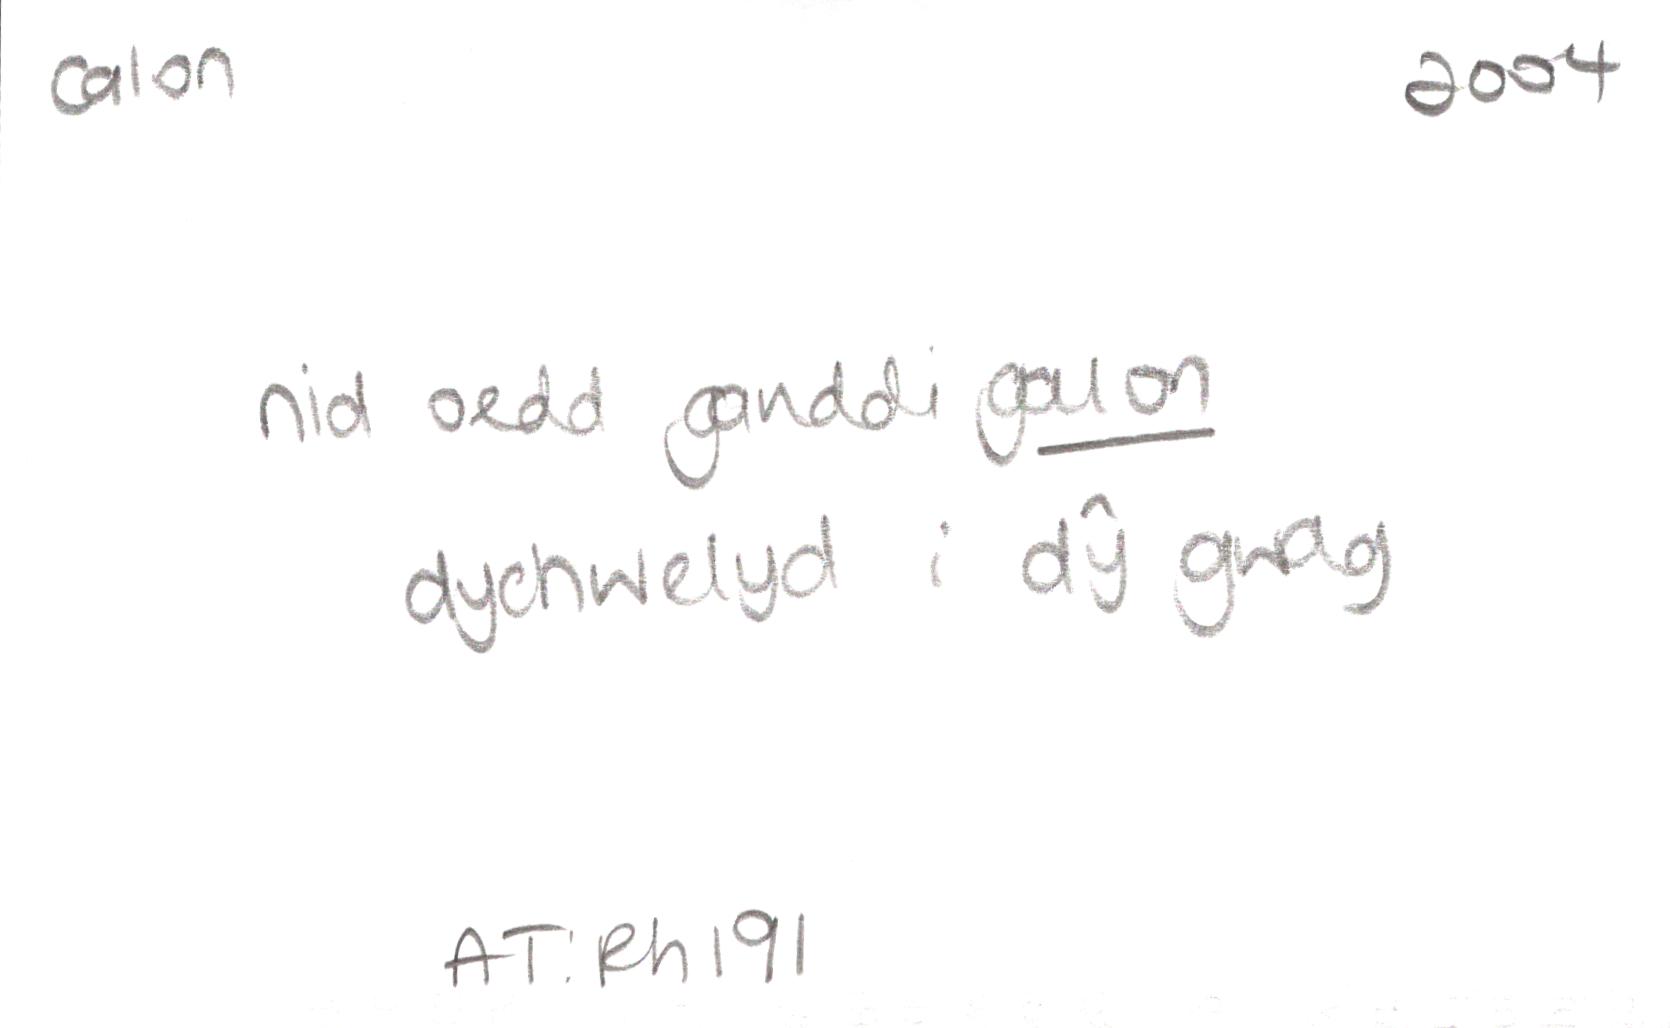 calon 2004
nid oedd ganddi galon
dychwelyd i dŷ gwag
AT:Rh191